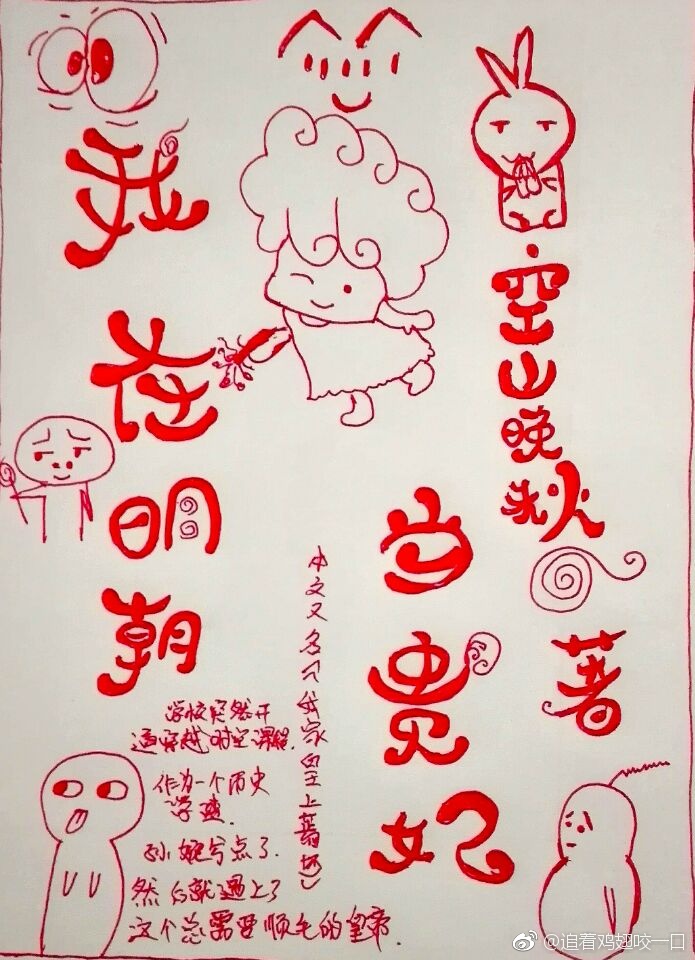 我在明朝
当贵妃
空山晚秋
著
本文又名《我家皇上萌坏》
学校突然开
通穿越时空课程.
作为一个历史
学渣.
孙婉兮点了.
然后就遇上了
这个总需要顺毛的皇帝.
@追着鸡翅咬一口